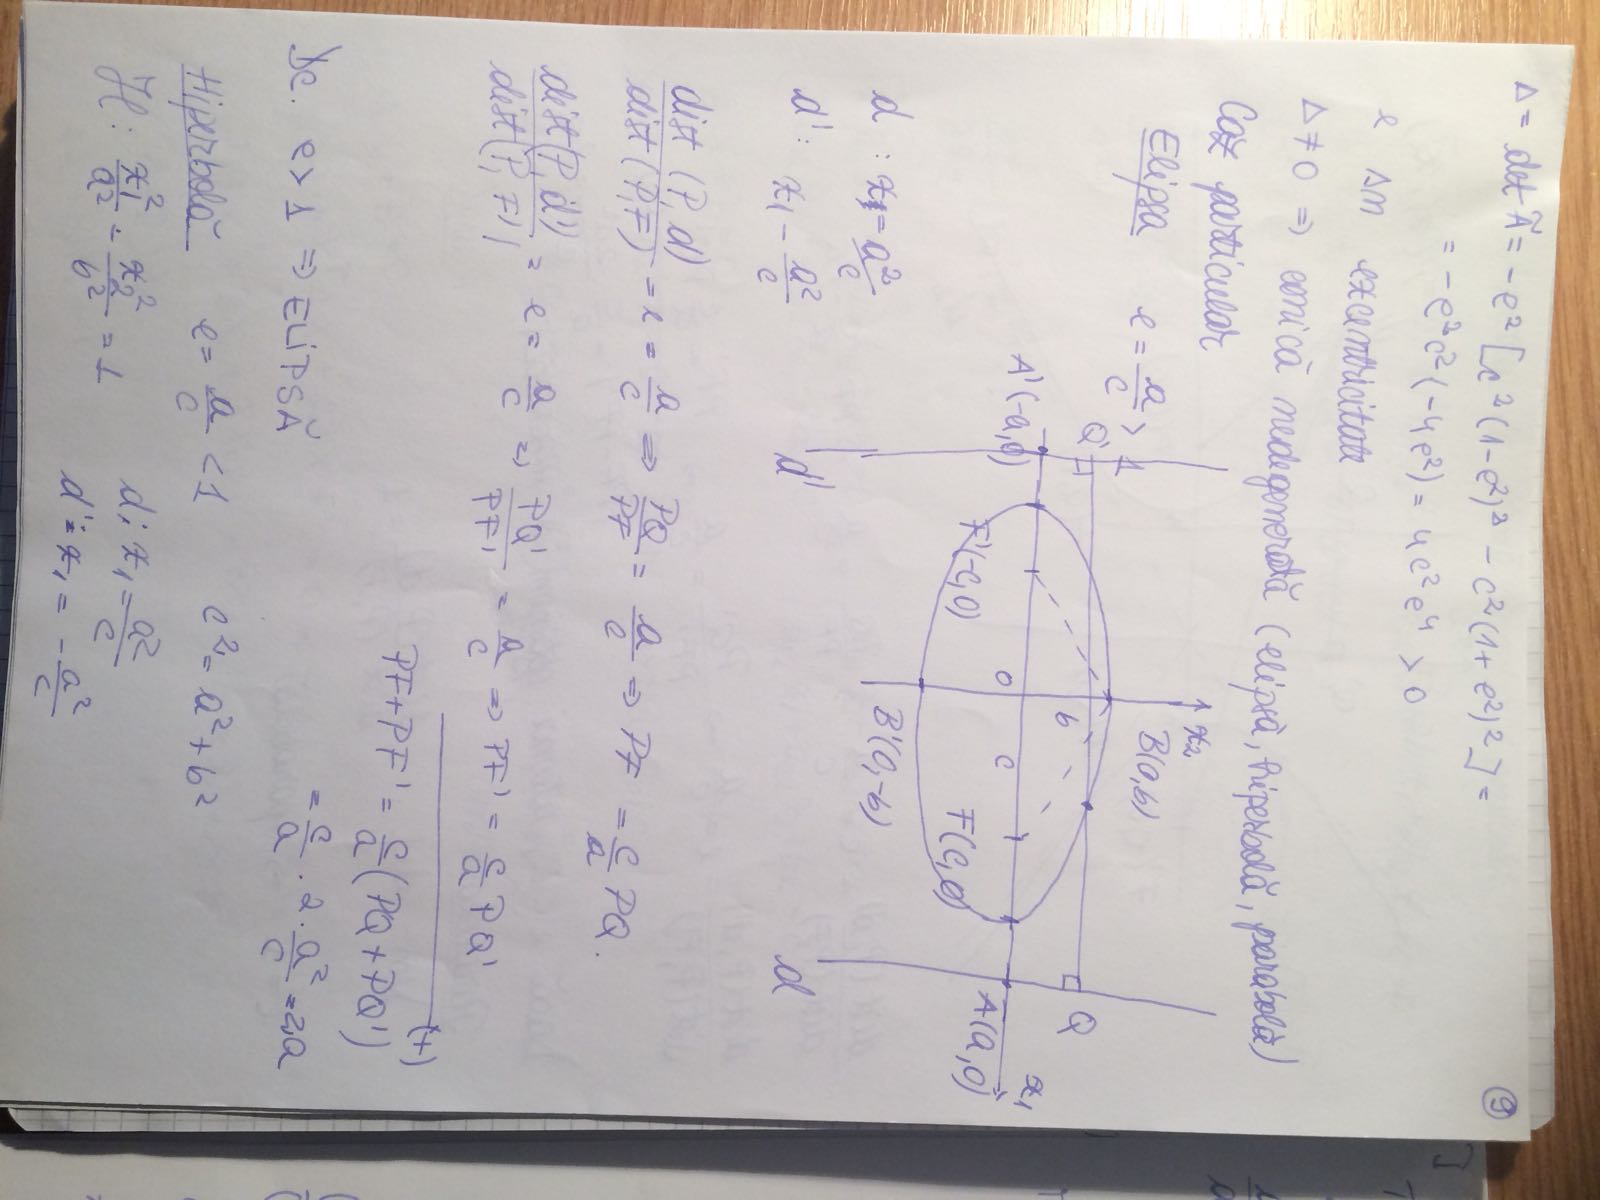 ⑨
Δ = det Ã = -e² [c²(1-e²)² - c²(1+e²)²] =
= -e²c²(-4e²) = 4c²e⁴ > 0
e sn excentricitate
Δ ≠ 0 ⇒ conică nedegenerată (elipsă, hiperbolă, parabolă)
Caz particular
Elipsa e = a/c > 1
x₂
B(0,b)
Q'
Q
A'(-a,0)
b
O
c
A(a,0)
x₁
F'(-c,0)
F(c,0)
B'(0,-b)
d'
d
d : x₁ = a²/c
d' : x₁ - a²/c
dist (P, d) / dist (P, F) = e = a/c ⇒ PQ/PF = a/c ⇒ PF = c/a PQ.
dist(P, d') / dist(P, F') = e = a/c ⇒ PQ'/PF' = a/c ⇒ PF' = c/a PQ'
(+)
PF + PF' = c/a (PQ + PQ')
= c/a · 2 · a²/c = 2a
e > 1 ⇒ ELIPSĂ
Hiperbolă e = a/c < 1 c² = a² + b²
H : x₁²/a² - x₂²/b² = 1 d : x₁ = a²/c
d' : x₁ = -a²/c